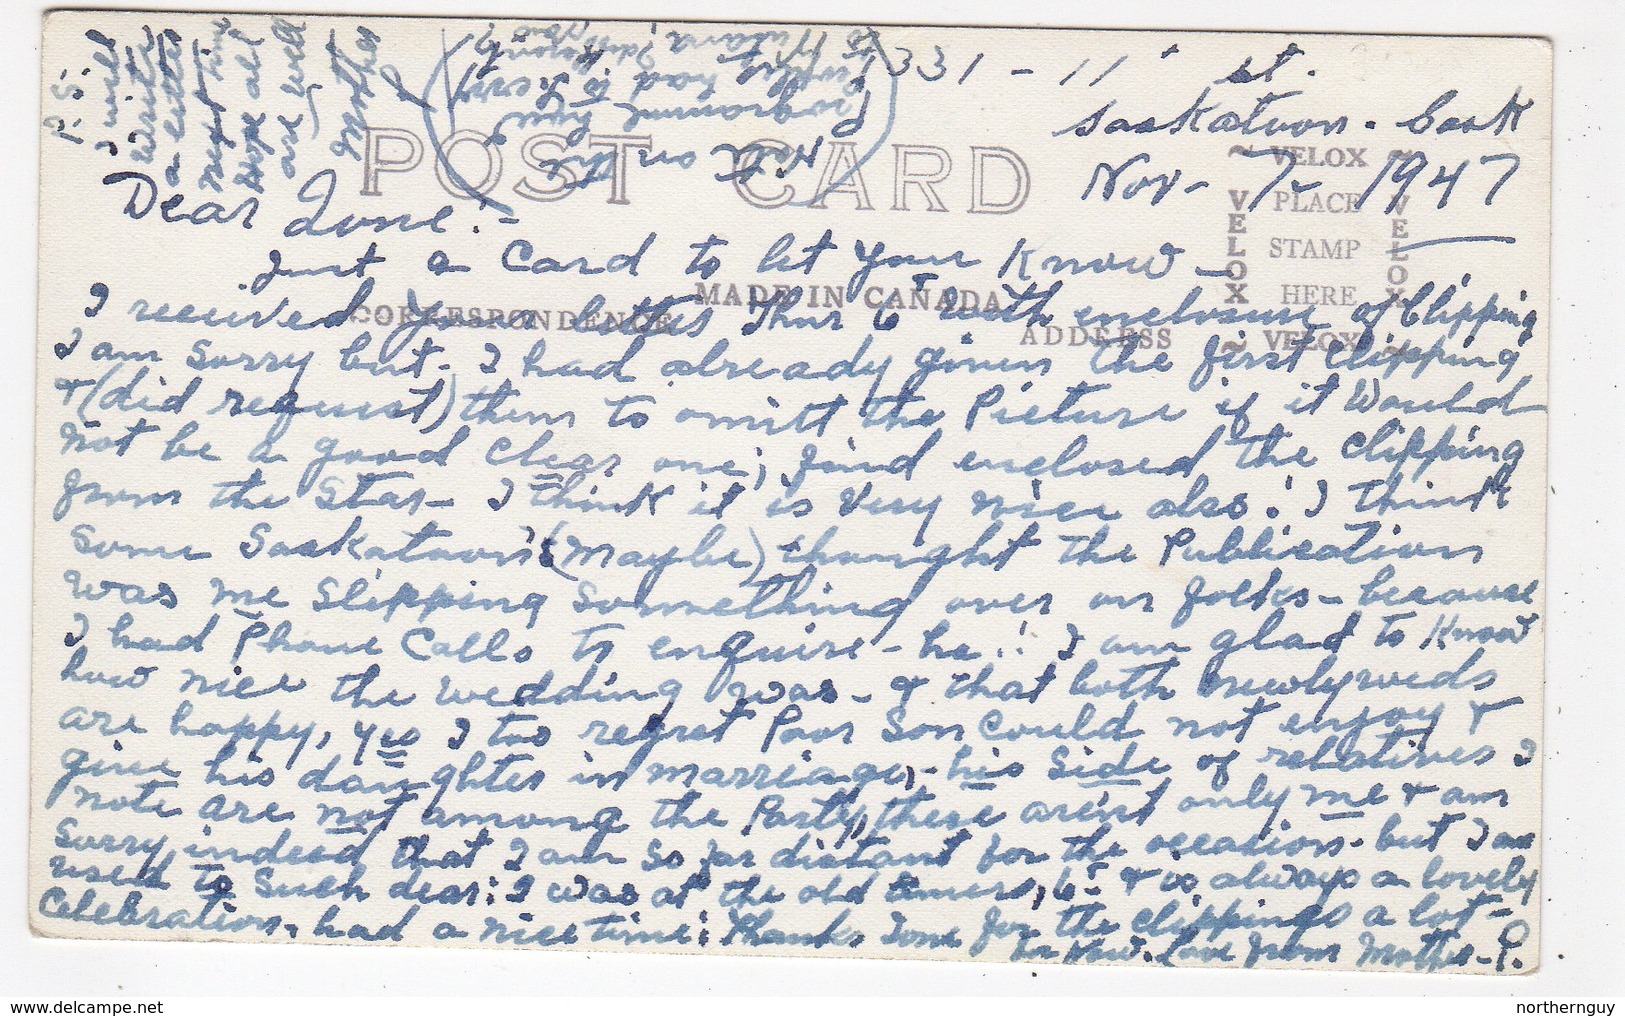 331 - 11 st.
Saskatoon. Sask
Nov - 7 - 1947
POST CARD
MADE IN CANADA
CORRESPONDENCE
ADDRESS
VELOX
VELOX PLACE VELOX
STAMP
HERE
VELOX
Dear Ione :-
Just a Card to let your Know -
I received your letter Thur 6 With enclosure of Clipping
I am Sorry but - I had already given the first Clipping
+ (did request) them to omitt the Picture if it Would
not be a good Clear one; find enclosed the Clipping
from the Star - I think it is Very nice also! I think
Some Saskatoon's (Maybe) thought the Publication
was me Slipping Something over on folks - because
I had Phone Calls to enquire - he!! I am glad to Know
how nice the Wedding was - + that both newlyweds
are happy, yes I too regret Poor Son Could not enjoy +
give his daughter in marriage, - his Side of relatives I
note are not among the Party, there aren't only me + am
Sorry indeed that I am So far distant for the occasion - but I am
used to Such dear: I was at the old timers, 6th + is always a lovely
Celebration. had a nice time: Thanks Ione for the clippings a lot -
Love from Mother - P.
P.S.
I will
Write
a letter
next time
Hope all
are well
Mother